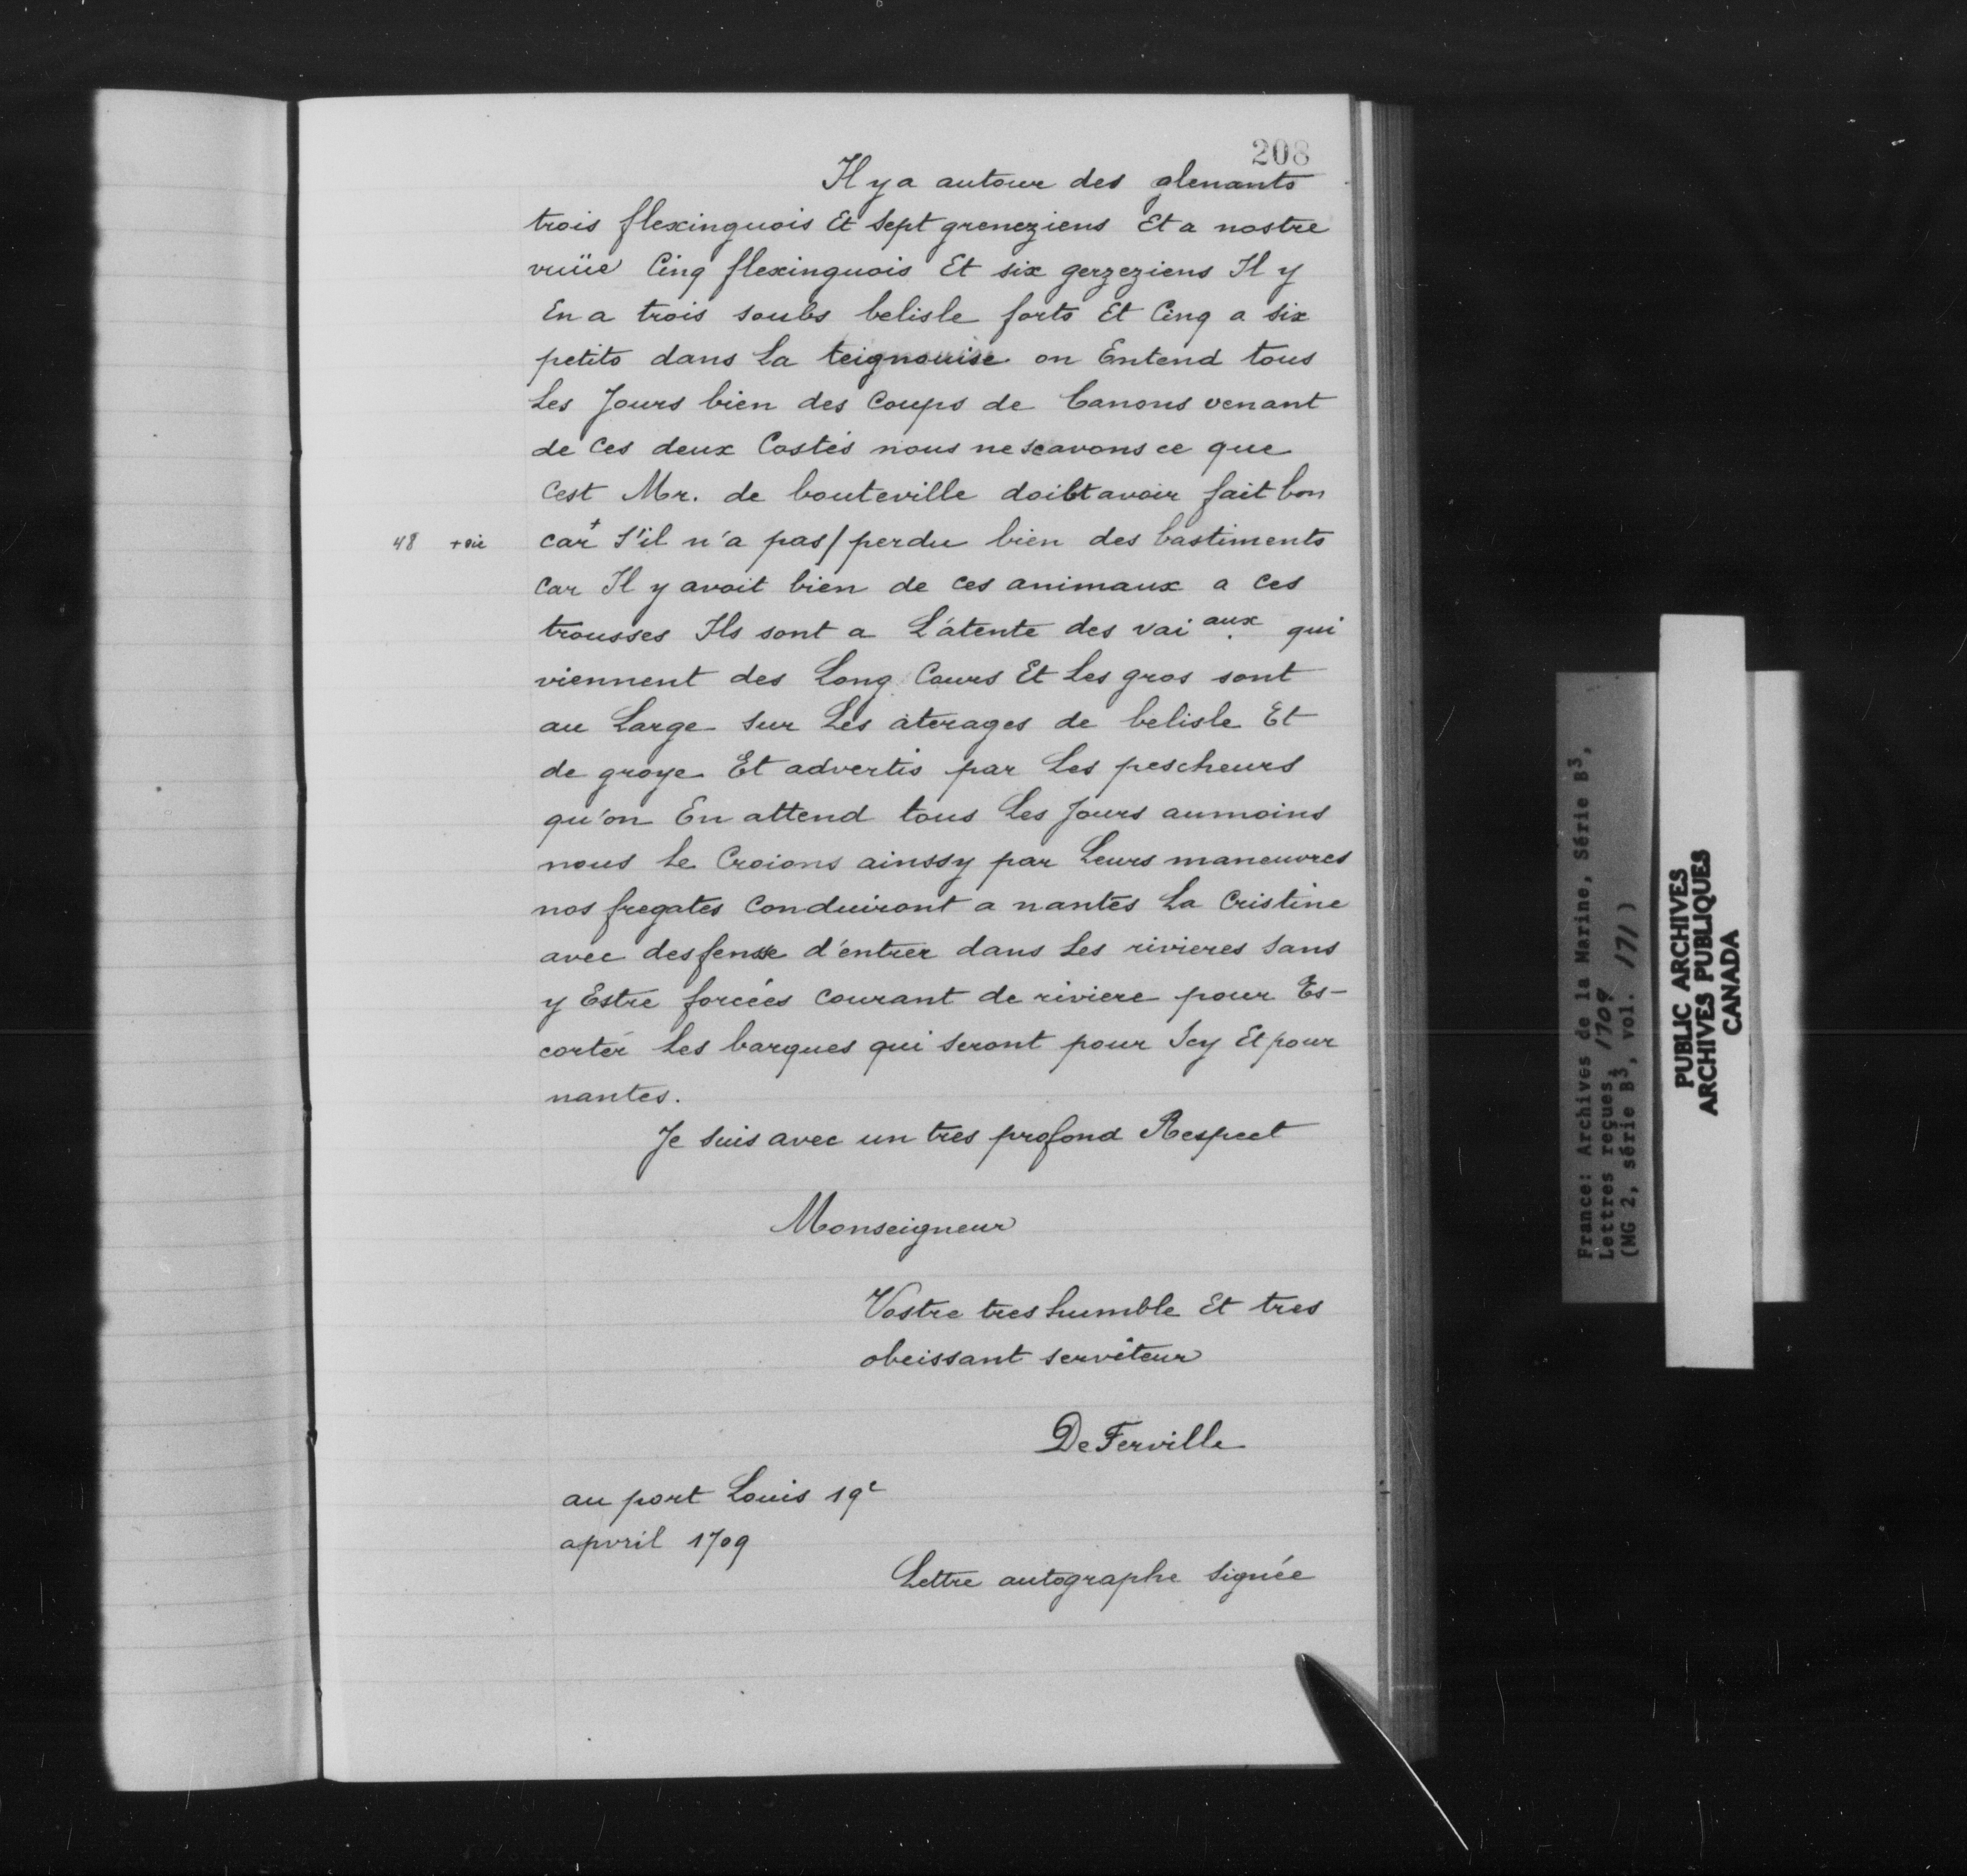 208
Il y a autour des glenants
trois flexinguois Et Sept greneziens Et a nostre
vuüe Cinq flexinguois Et six gerzeziens Il y
En a trois soubs belisle forts Et Cinq a six
petits dans La teignouise on Entend tous
Les Jours bien des Coups de Canons venant
de Ces deux Costés nous ne scavons ce que
Cest Mr. de bouteville doibt avoir fait bon
48 + sic car + s'il n'a pas / perdu bien des bastiments
Car Il y avoit bien de ces animaux a ces
trousses Ils sont a L'atente des vai aux qui
viennent des Long Cours Et Les gros sont
au Large Sur Les aterages de belisle Et
de groye Et advertis par Les pescheurs
qu'on En attend tous Les Jours aumoins
nous Le Croions ainssy par Leurs maneuvres
nos fregates Conduiront a nantes La Cristine
avec desfense d'entrer dans Les rivieres Sans
y Estre forcées Courant de riviere pour Es-
corter Les barques qui Seront pour Icy Et pour
nantes.
Je Suis avec un tres profond Respect
Monseigneur
Vostre tres humble Et tres
obeissant serviteur
De Ferville
au port Louis 19e
apvril 1709
Lettre autographe Signée
France: Archives de la Marine, Série B3,
Lettres reçues, 1709
(MG 2, série B3, vol. 171)
PUBLIC ARCHIVES
ARCHIVES PUBLIQUES
CANADA